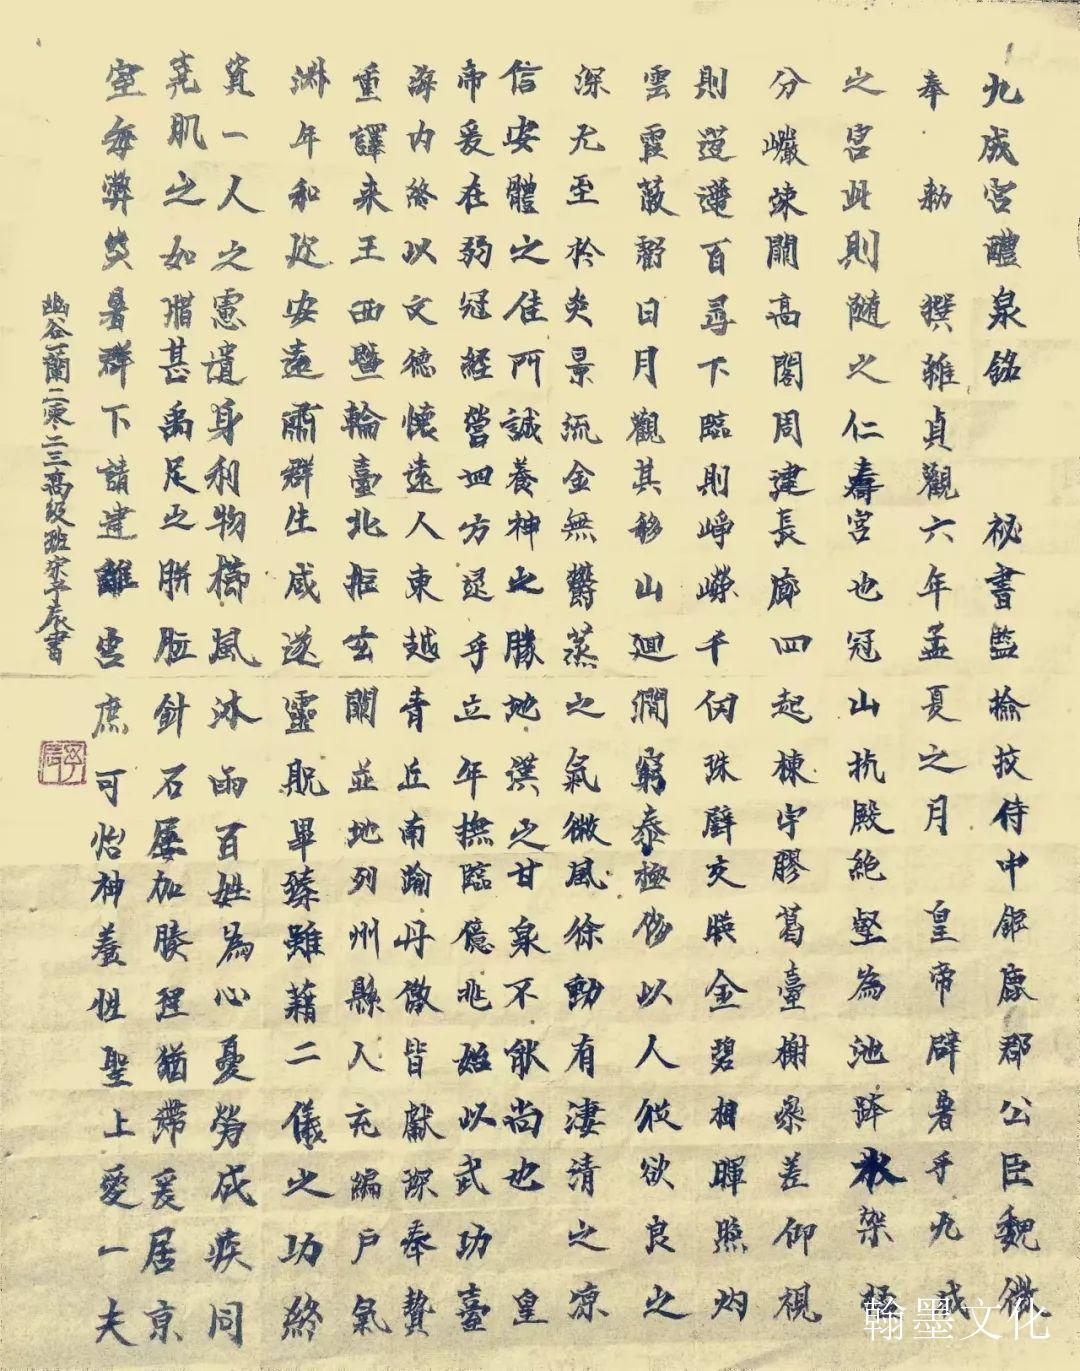 九成宮醴泉銘 祕書監撿挍侍中鉅鹿郡公臣魏徵
奉 勅 撰維貞觀六年孟夏之月 皇帝辟暑乎九成
之宮此則隨之仁壽宮也冠山抗殿絕壑為池跨水架楹
分巗竦闕高閣周建長廊四起棟宇膠葛臺榭參差仰視
則迢遰百尋下臨則崢嶸千仞珠璧交暎金碧相暉照灼
雲霞蔽虧日月觀其移山迴澗窮泰極侈以人從欲良之
深尤至於炎景流金無欝蒸之氣微風徐動有淒清之涼
信安體之佳所誠養神之勝地漢之甘泉不能尚也 皇
帝爰在弱冠經營四方逮乎立年撫臨億兆始以武功壹
海内終以文德懷遠人東越青丘南踰丹儌皆獻琛奉贄
重譯来王西暨輪臺北拒玄闕並地列州縣人充編戶氣
淋年和迩安遠肅群生咸遂靈貺畢臻雖藉二儀之功終
資一人之慮遺身利物櫛風沐雨百姓為心憂勞成疾同
堯肌之如腊甚禹足之胼胝針石屢加腠理猶滯爰居京
室每弊炎暑群下請建離宮庶可怡神養性聖上愛一夫
幽谷一蘭二零二三高級班宋予辰書
翰墨文化